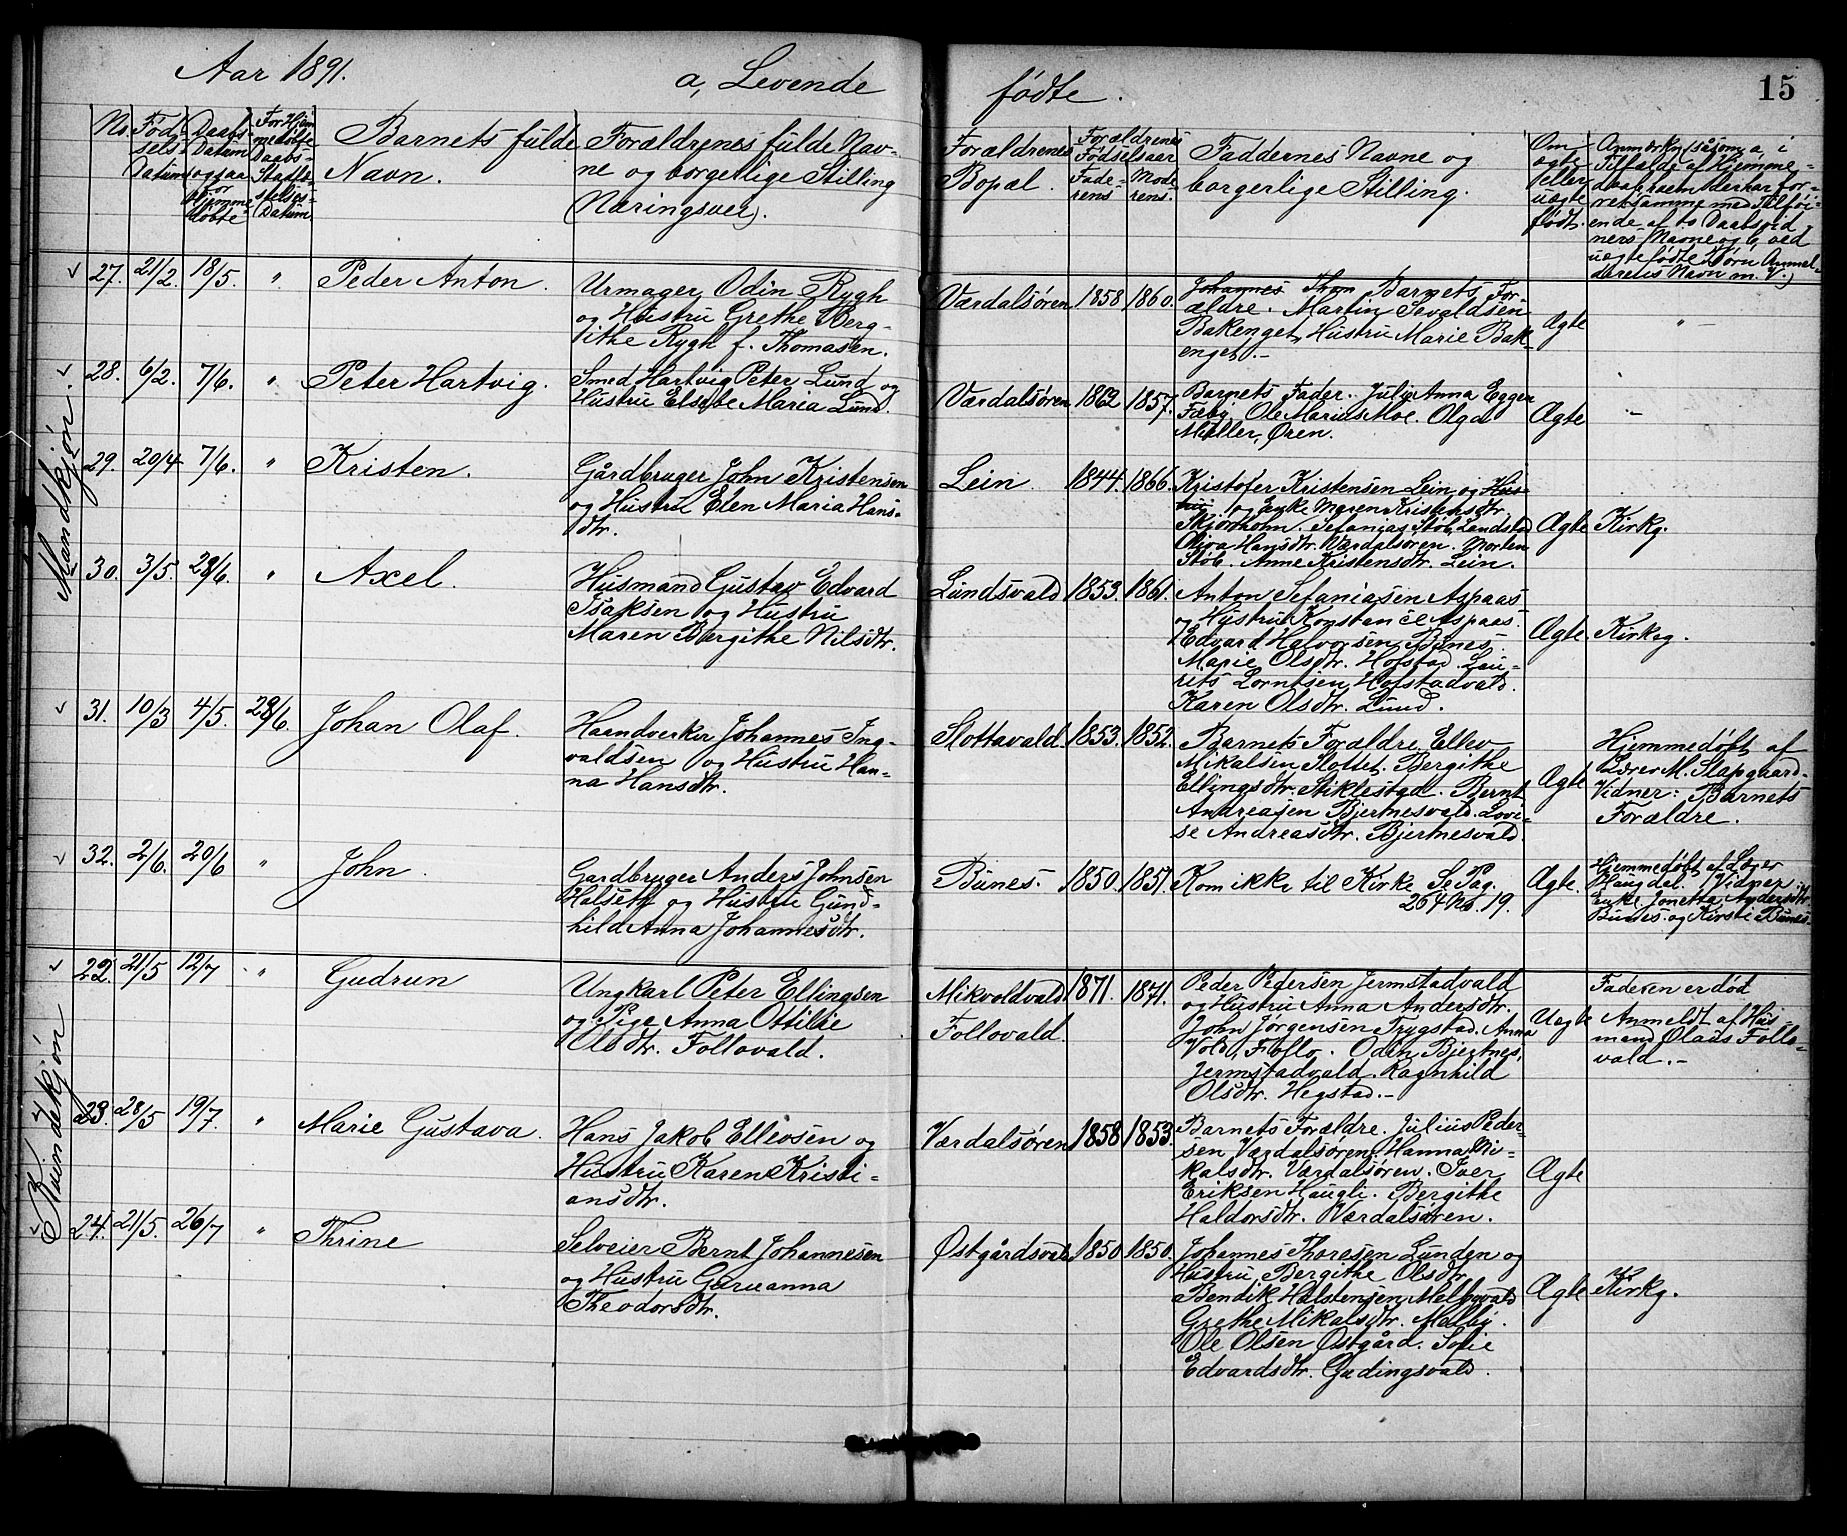 Aar 1891. a, Levende fødte. 15
No. Fødsels Datum Daabs-Datum ogsaa for hjemmedøbte For Hjemmedøbte Daabs-Stadfæstelses Datum
Barnets fulde Navn.
Forældrenes fulde Navne og borgerlige Stilling (Næringsvei).
Forældrenes Bopæl.
Forældrenes Fødselsaar Faderens Moderens.
Faddernes Navne og borgerlige Stilling.
Om ægte eller uægte født.
Anmærkn. (såsom a, i Tilfælde af Hjemmedaab hvem der har for
ners Navne og b, ved uægte fødte Børn Anmelderens Navn m. V.)
Mandkjøn.
27. 21/2. 18/5. " Peder Anton.
Urmager Odin Rygh
og Hustru Grethe Berg-
ithe Rygh f. Thomasen.
Værdalsøren 1858 1860.
Johannes Thom Barnets For-
ældre. Martin Sevaldsen
Bakenget, Hustru Marie Bak-
enget.-
Ægte " -
28. 6/2. 7/6. " Peter Hartvig.
Smed Hartvig Peter Lund og
Hustru Elsebe Maria Lund.
Værdalsøren 1862 1857.
Barnets Fader. Julie Anna Eggen
Fæby. Ole Marius Moe. Olga
Müller, Øren.
Ægte -
29. 20/4 7/6. " Kristen.
Gårdbruger John Kristensen
og Hustru Elen Maria Hans-
dtr.
Lein. 1844. 1866.
Kristofer Kristensen Lein og Hus-
tru og Enke Maren Kristensdtr.
Skjørholm. Sefanias Stob, Landstad
Oliva Hansdtr. Værdalsøren. Morten
Stob. Anne Kristensdtr. Lein.
Ægte Kirkg.
30. 3/5. 28/6. " Axel.
Husmand Gustav Edvard
Isaksen og Hustru
Maren Bergithe Nilsdtr.
Lundsvald 1853. 1861.
Anton Sefaniasen Aspaas
og Hustru Konstance Aspaas.
Edvard Halvorsen Bunes.
Marie Olsdtr. Hofstad. Lau-
rits Lorntsen Hofstadvald.
Karen Olsdtr. Lund.
Ægte Kirkeg.
31. 10/3 4/5. 28/6. Johan Olaf.
Haandverker Johannes Ing-
valdsen og Hustru Han-
na Hansdtr.
Slottavald. 1853. 1852.
Barnets Forældre. Ellev
Mikalsen Slottet. Bergithe
Ellingsdtr. Stiklestad. Bernt
Andreasen Bjertnesvald. Lovi-
se Andreasdtr. Bjertnesvald.
Ægte
Hjemmedøbt af
Lærer M. Slapgaard.
Vidner: Barnets
Forældre.
32. 2/6. 20/6 " John.
Gardbruger Anders Johnsen
Halseth og Hustru Gund-
hild Anna Johannesdtr.
Bunes. 1850. 1851.
Kom ikke til Kirke Se Pag.
264 No. 19.
Ægte.
Hjemmedøbt af Lærer
Haugdal. Vidner:
Enke Jonetta Andersdtr.
Bunes. og Kirsti Bunes
Kvindekjøn
22. 21/5 12/7 " Gudrun
Ungkarl Peter Ellingsen
og Pige Anna Ottilie
Olsdtr. Follovald.
Mikvoldvald
Follovald.
1871. 1871.
Peder Pedersen Jermstadvald
og Hustru Anna Andersdtr.
John Jørgensen Trygstad. Anna
Vold, Floflo. Odin Bjertnes,
Jermstadvald. Ragnhild
Olsdtr. Hegstad.-
Uægte
Faderen er død
Anmeldt af Hus-
mand Olaus Follo-
vald.-
23. 28/5 19/7. " Marie Gustava.
Hans Jakob Ellevsen og
Hustru Karen Kristi-
ansdtr.
Værdalsøren 1858 1853.
Barnets Forældre. Julius Peder-
sen Værdalsøren. Hanna Mi-
kalsdtr. Værdalsøren. Iver
Eriksen Haugli. Bergithe
Haldorsdtr. Værdalsøren.
Ægte
24. 21/5. 26/7 " Thrine
Selveier Bernt Johannesen
og Hustru Guruanna
Theodorsdtr.
Østgårdsvald 1850. 1850.
Johannes Thoresen Lunden og
Hustru Bergithe Olsdtr.
Bendik Halstensen Melbyvald
Grethe Mikalsdtr. Melby.
Ole Olsen Østgård. Sofie
Edvardsdtr. Gudingsvald.
Ægte Kirkg.